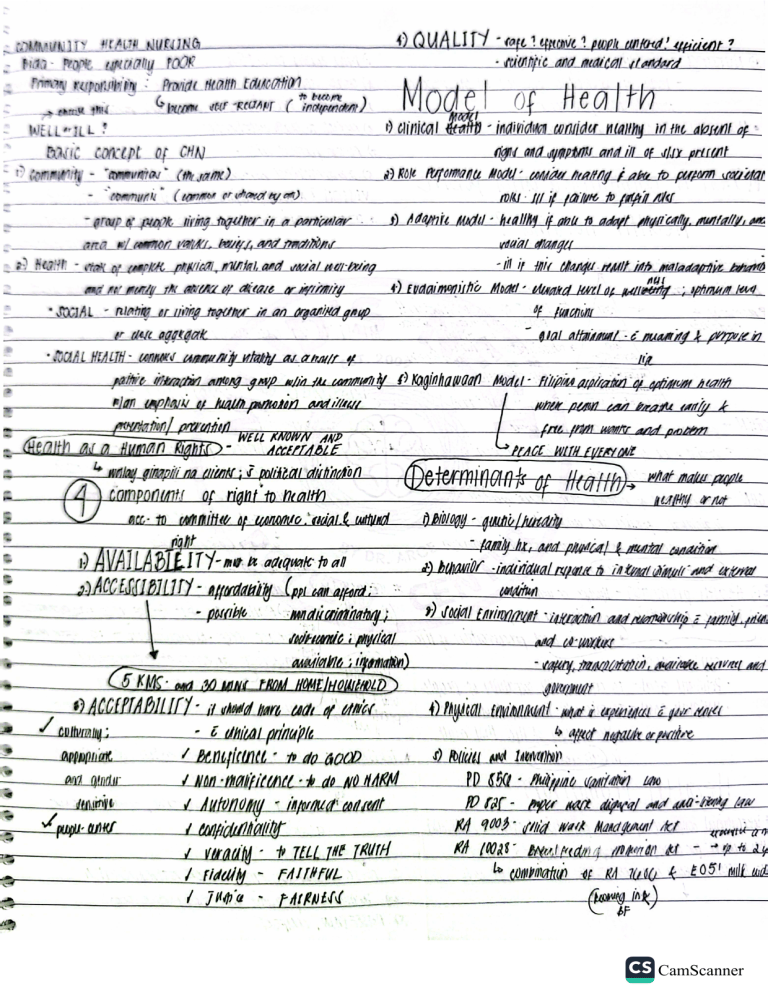 COMMUNITY HEALTH NURSING
People especially POOR
Primary Responsibility: Provide Health Education
↳ become self-RELIANT (to become independent)
WELL or ILL?
BASIC CONCEPT of CHN
1) Community - "communitas" (the same)
- "communis" (common or shared by all)
- group of people living together in a particular
area w/ common values, beliefs, and traditions
2) Health - state of complete physical, mental, and social well-being
and not merely the absence of disease or infirmity
• SOCIAL - relating or living together in an organized group
or close aggregate
• SOCIAL HEALTH - connotes community vitality as a result of
positive interaction among group w/in the community
w/ an emphasis of health promotion and illness
prevention
Health as a Human Rights - WELL KNOWN AND ACCEPTABLE
↳ walay ginapili na clients; s̄ political distinction
4 components of right to health
acc. to committee of economic, social & cultural
right
1) AVAILABILITY - must be adequate to all
2) ACCESSIBILITY - affordability (ppl can afford;
- possible nondiscriminatory;
socio-economic; physical
available; information)
5 KMS and 30 MINS FROM HOME/HOUSEHOLD
3) ACCEPTABILITY - it should have code of ethics
✓ culturally; - c̄ ethical principle
appropriate ✓ Beneficence - to do GOOD
and gender ✓ Non-maleficence - to do NO HARM
sensitive ✓ Autonomy - informed consent
✓ people-center ✓ confidentiality
✓ Veracity - to TELL THE TRUTH
✓ Fidelity - FAITHFUL
✓ Justice - FAIRNESS
4) QUALITY - safe? effective? people centered? efficient?
- scientific and medical standard
Model of Health
1) Clinical Model - individual consider healthy in the absent of
signs and symptoms and ill if s/sx present
2) Role Performance Model - consider healthy if able to perform societal
roles. Ill if failure to fulfill roles
3) Adaptive Model - healthy if able to adapt physically, mentally, and
social changes
- ill if this changes result into maladaptive behaviors
4) Eudaimonistic Model - elevated level of wellness; optimum level
of functions
- goal attainment - c̄ meaning & purpose in
life
5) Kaginhawaan Model - Filipino aspiration of optimum health
where person can breathe easily &
free from worries and problem
↳ PEACE WITH EVERYONE
Determinants of Health → what makes people
healthy or not
1) Biology - genetic/heredity
- family hx, and physical & mental condition
2) Behavior - individual response to internal stimuli and external
condition
3) Social Environment - interaction and relationship c̄ family, friends
and co-workers
- safety, transportation, available resources and
government
4) Physical Environment - what is experiences c̄ your senses
↳ affect negative or positive
5) Policies and Intervention
PD 856 - Philippine Sanitation Law
PD 825 - proper waste disposal and anti-littering law
RA 9003 - Solid Waste Management Act
RA 10028 - Breastfeeding promotion Act - → up to 2 y
↳ combination of RA 7600 & EO51 milk code
(rooming in &
BF
CS CamScanner